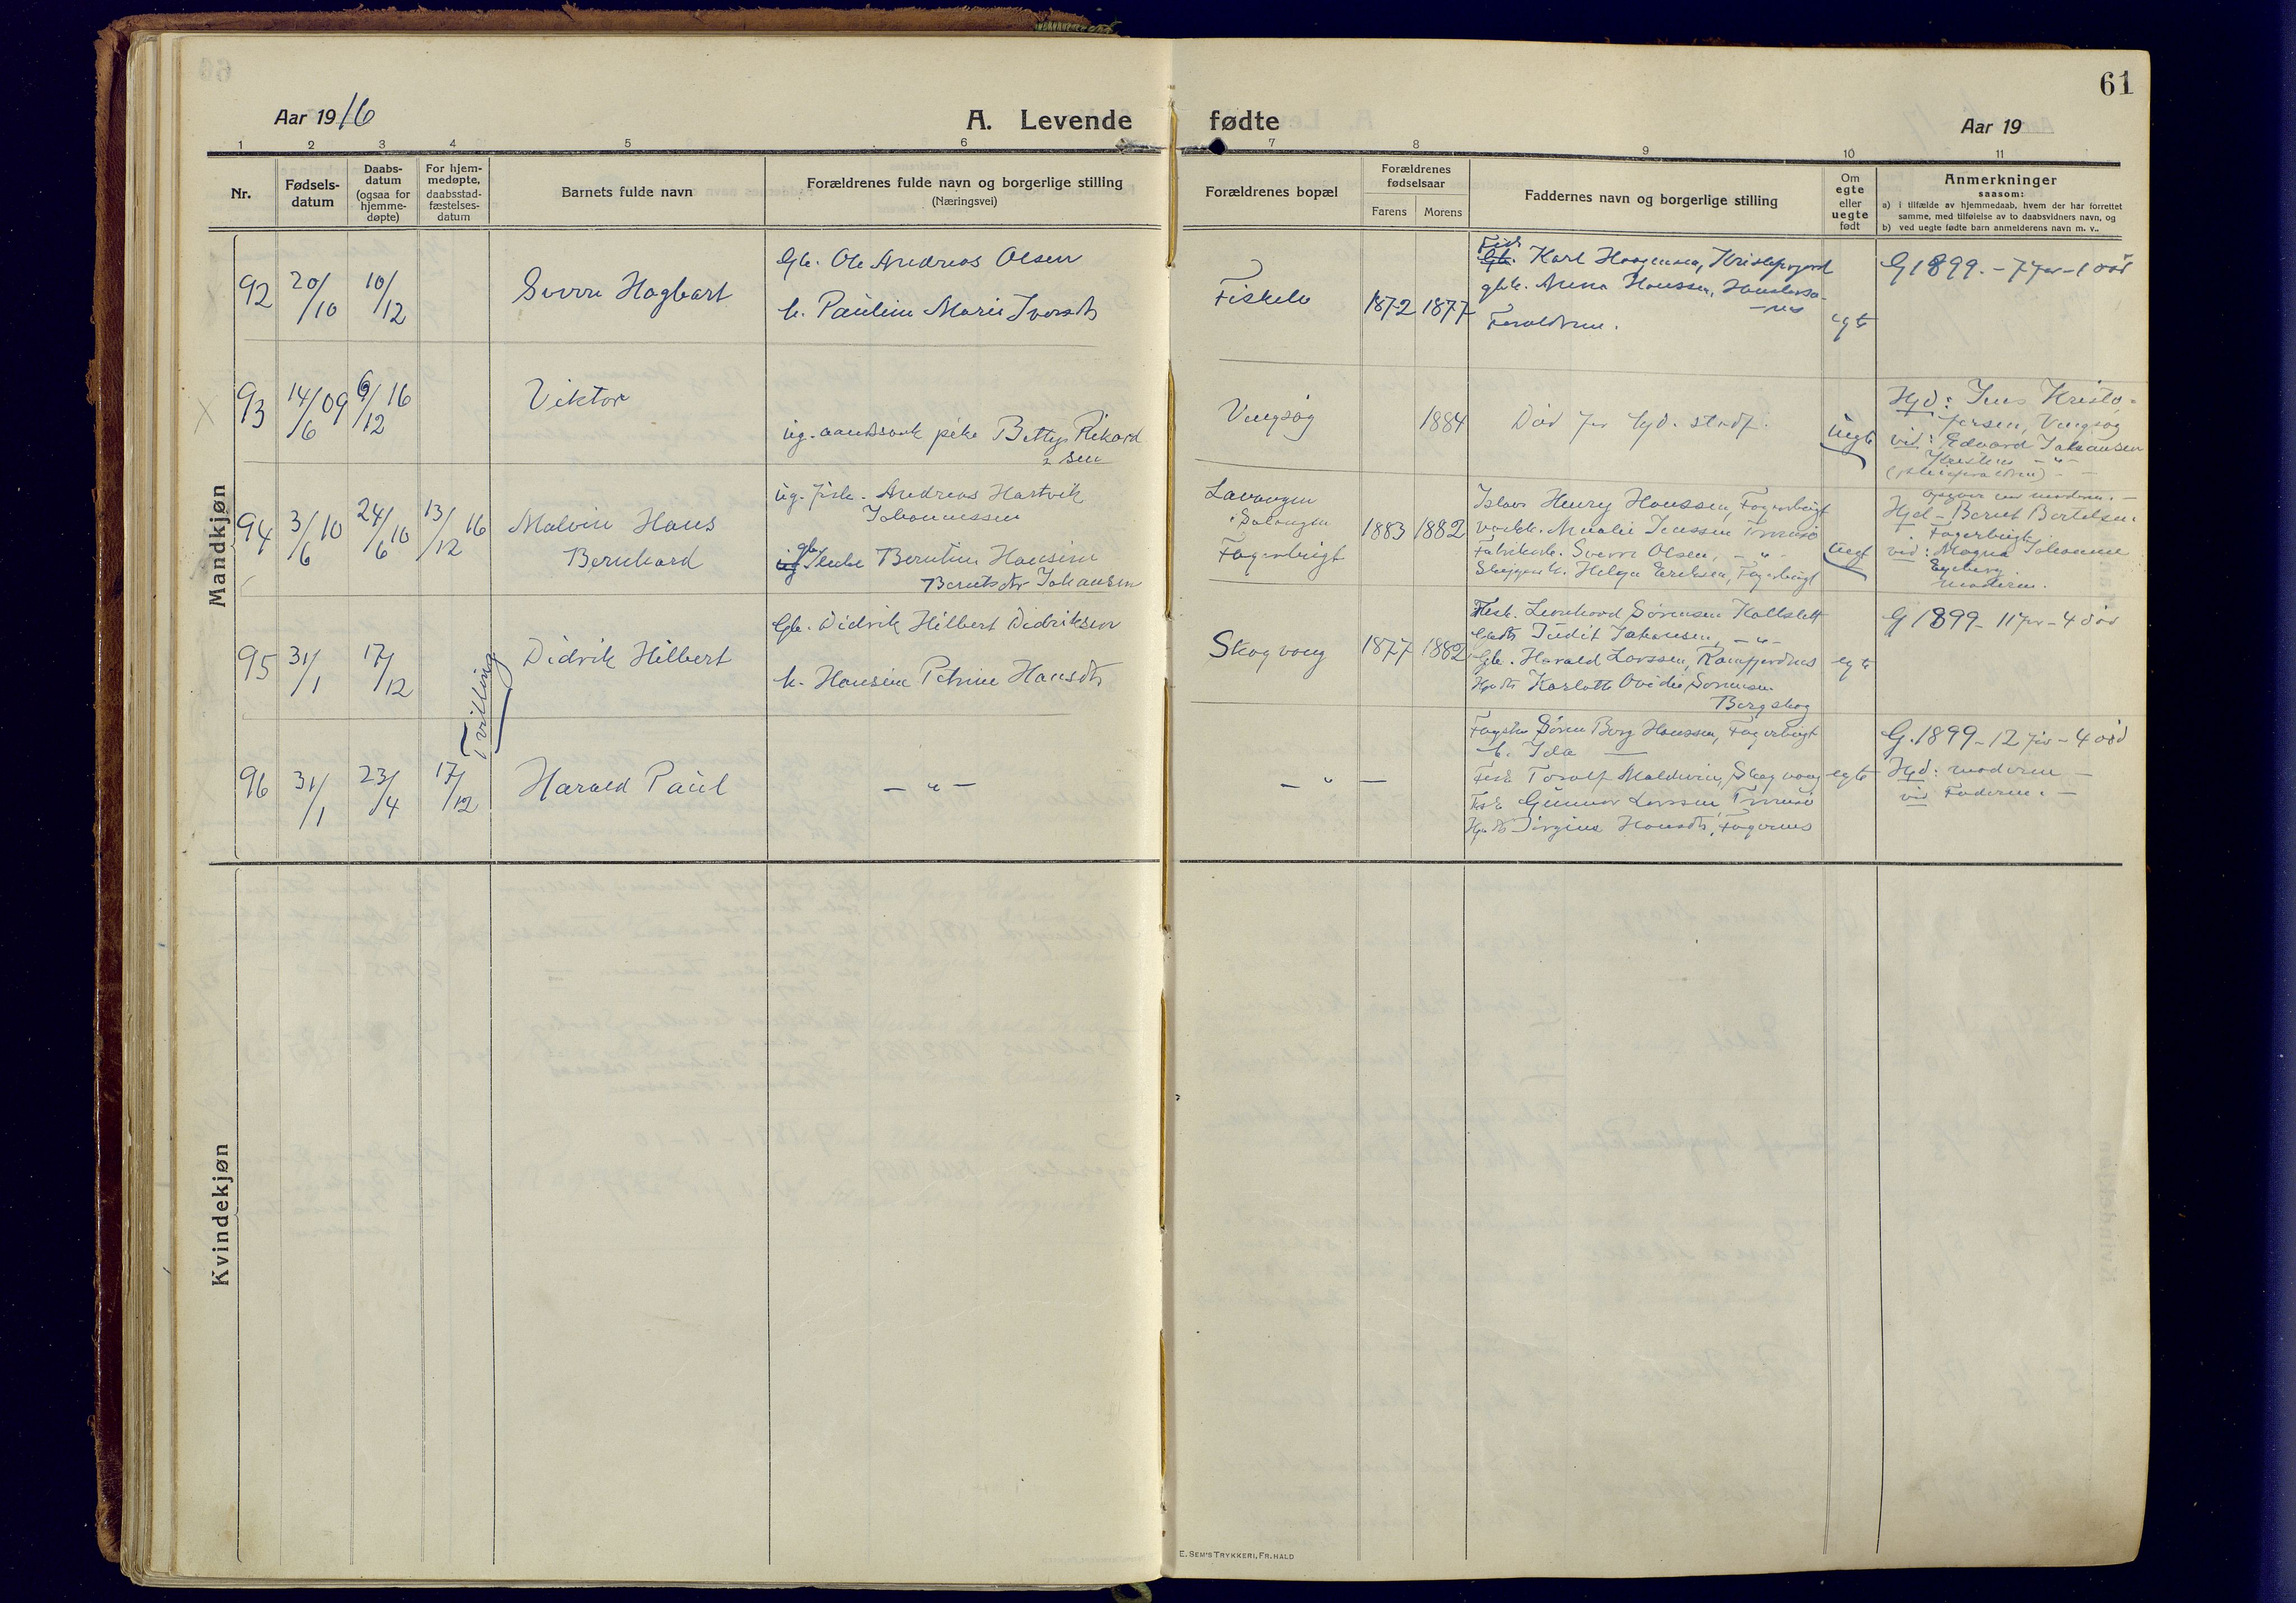 61
Aar 1916
A. Levende fødte
Aar 19
1 2 3 4 5 6 7 8 9 10 11
Nr.
Fødsels-
datum
Daabs-
datum
(ogsaa for
hjemme-
døpte)
For hjem-
medøpte,
daabsstad-
fæstelses-
datum
Barnets fulde navn
Forældrenes fulde navn og borgerlige stilling
(Næringsvei)
Forældrenes bopæl
Forældrenes
fødselsaar
Farens Morens
Faddernes navn og borgerlige stilling
Om
egte
eller
uegte
født
Anmerkninger
saasom:
a) i tilfælde av hjemmedaab, hvem der har forrettet
samme, med tilføielse av to daabsvidners navn, og
b) ved uegte fødte barn anmelderens navn m. v..
Mandkjøn
92 20/10 10/12
Sverre Hagbart
Gb. Ole Andreas Olsen
h. Pauline Marie Iversdtr
Fiskelv
1872 1877
Fisk.
Gb. Karl Haagensen,
gbk. Anna Hanssen,
Forældrene.
egte
G 1899. - 7 - 1
93 14/6 09 6/12 16
Viktor
ug. aandssvak pike Betty Rikard
sen
Vengsøy
1884
Død før hjd. stadf.
uegte
Hjd: Jens Kristo-
fersen, Vengsøy
vid: Edvard Johansen
Kristine - " -
opgiver ved moderen. -
94 3/6 10 24/6 10 13/12 16
Malvin Hans
Bernhard
ug. fisk. Andreas Hartvik
Johannessen
ug Berntine Hansine
Berntsdtr Johansen
Lavangen
i Salangen
Fagerbugt
1883 1882
Henry Hanssen, Fagerbugt
Jenssen Tromsø
Fabrikarb. Sverre Olsen, - " -
Helga Eriksen, Fagerbugt
uegt
Hjd - Bernt Bertelsen
Fagerbugt
vid: Magna Johanne
moderen.
95 31/1 17/12
Tvilling
Didrik Hilbert
Gb. Didrik Hilbert Didriksen
h. Hansine Petrine Hansdtr
Skogvang
1877 1882
Fisk. Leonhard Sørensen Kaltslett
Judit Johansen, - " -
Gb. Harald Larssen, Ramfjordnes
Karlotte Ovidie Sørensen
Bergskog
egte
G 1899 - 11 - 4
96 31/1 23/4 17/12
Harald Paul
- " -
- " -
Søren Berg Hanssen, Fagerbugt
h. Ida —
Fisk Torolf Maldwin, Skogvang
Fisk Gunnar Larssen, Tromsø
Jørgine Hansdtr, Fagernes
egte
G. 1899 - 12 - 4
Hjd: moderen -
vid Faderen. -
Kvindekjøn
E. SEM'S TRYKKERI, FR.HALD